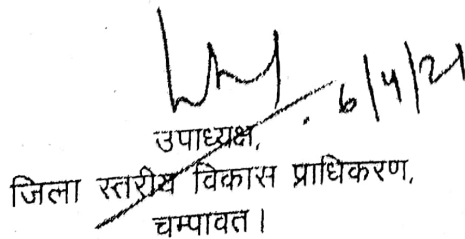 6/4/21
उपाध्यक्ष,
जिला स्तरीय विकास प्राधिकरण,
चम्पावत।